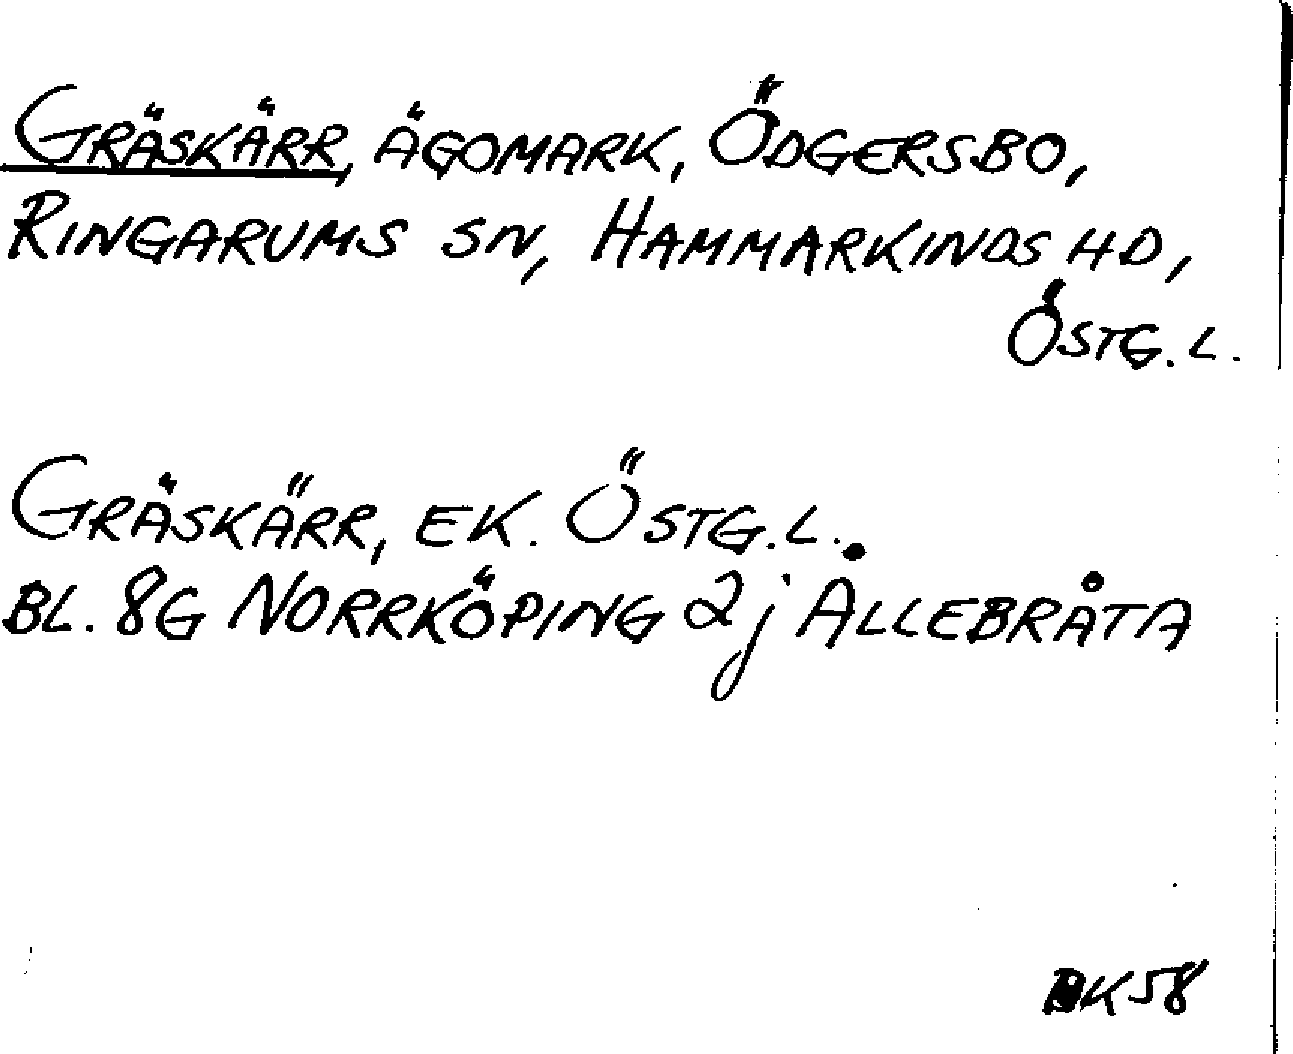 GRÄSKÄRR, ÄGOMARK, ÖDGERSBO,
RINGARUMS SN, HAMMARKINDS HD,
ÖSTG. L.
GRÄSKÄRR, EK. ÖSTG. L.
BL. 8G NORRKÖPING 2j ALLEBRÅTA
K58